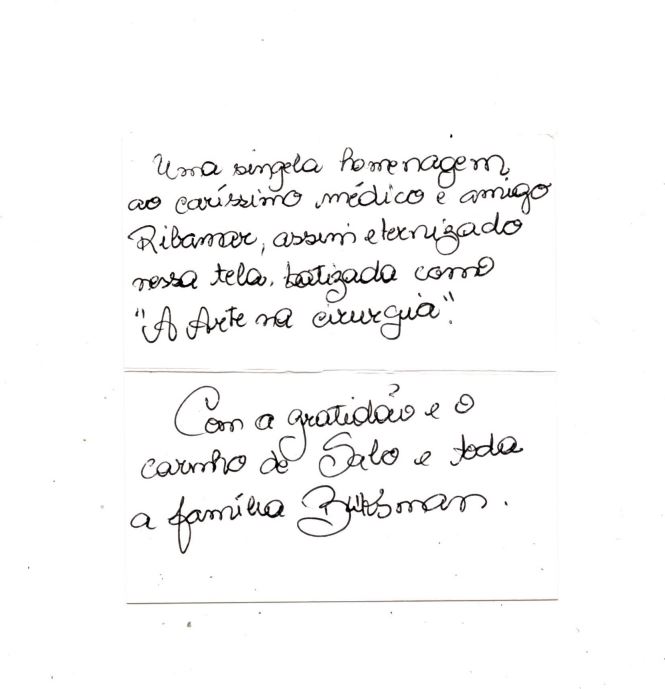 Uma singela homenagem
ao caríssimo médico e amigo
Ribamar, assim eternizado
nessa tela, batizada como
"A Arte na cirurgia".
Com a gratidão e o
carinho de Salo e toda
a família